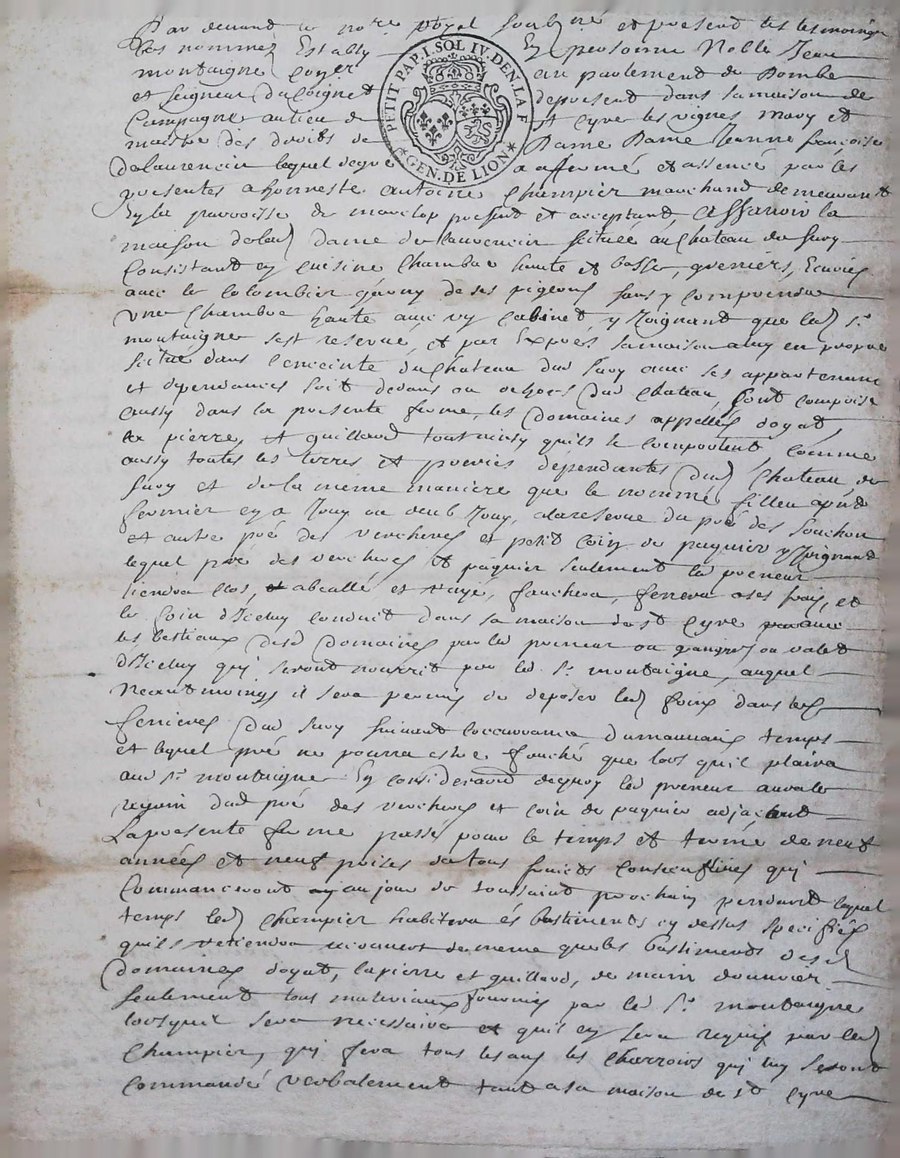 Par devant le no.re Royal soubz.ne et presend les tesmoings
bas nommez Estably En personne Noble Jean
montaigne Coyer au parlement de Dombe
et seigneur du Poignet deposent dans sa maison de
Campagne au lieu de st Cyre les vignes mary et
maistre des droits de Dame Dame Jeanne francoise
delaurencin lequel degré a affermé et assencé par les
presentes a honneste antoine Champier marchand demeurant
En la parroisse de marclop present et acceptant, Assavoir la
maison de lad dame de laurencin scituée au Chateau de Sury
Consistant en cuisine Chambre haute et basse, greniers, Ecuries
avec le Colombier garny de ses pigeons sans y comprendre
une Chambre haute avec un cabinet y Joignant que led s.r
montaigne s'est reservé, et par Expres sa maison a luy en propre
scitue dans l'enceinte du Chateau dud Sury avec ses appartenance
et dependances soit dedans ou dehors dud Chateau, sont compris
aussy dans la presente ferme, les Domaines appellés doyat,
la pierre, et guillaud tout ainsy qu'ils se comportent, comme
aussy toutes les terres et preries dépendantes dud Chateau de
Sury et de la meme maniere que le nommé filleu
fermier en a Jouy ou deub Jouy, a la reserve du pré des souchon
et autre pré des vercheres et petit Coin de paquier y Joignant
lequel pré des vercheres et paquier seulement led preneur
tiendra clos, et fauchera, fenera a ses frais, et
le foin d'Iceluy conduit dans sa maison de st Cyre avec
les bestiaux desd Domaines par led preneur ou grangers ou valet
d'Iceluy qui seront nourrit par led s.r montaigne, auquel
Neantmoings il sera permis de deposer led foins dans les
fenieres dud Sury suivant loccurrance du mauvais temps
et lequel pré ne pourra estre fauché que lors qu'il plaira
aud s.r montaigne En consideraon dequoy led preneur aura le
revoin dud pré des vercheres et coin de paquier adjacent
La presente ferme passé pour le temps et terme de neuf
années et neuf prises de tous fruits consecutives qui
Commanceront au jour de toussaint prochain pendant lequel
temps led Champier habitera és bastiments cy dessus specifiés
qu'il retiendra de meme que les bastiments desd
Domaines doyat, lapierre et guillaud, de main d'ouvrier
seulement tous materiaux fournis par led s.r montaigne
lorsquil sera necessaire et qu'il en sera requis par led
Champier, qui fera tous les ans les Charrois qui luy seront
commandé verbalement tant a sa maison de st Cyre
PETIT PAP. I. SOL IV. DEN. LA F
GEN. DE LION